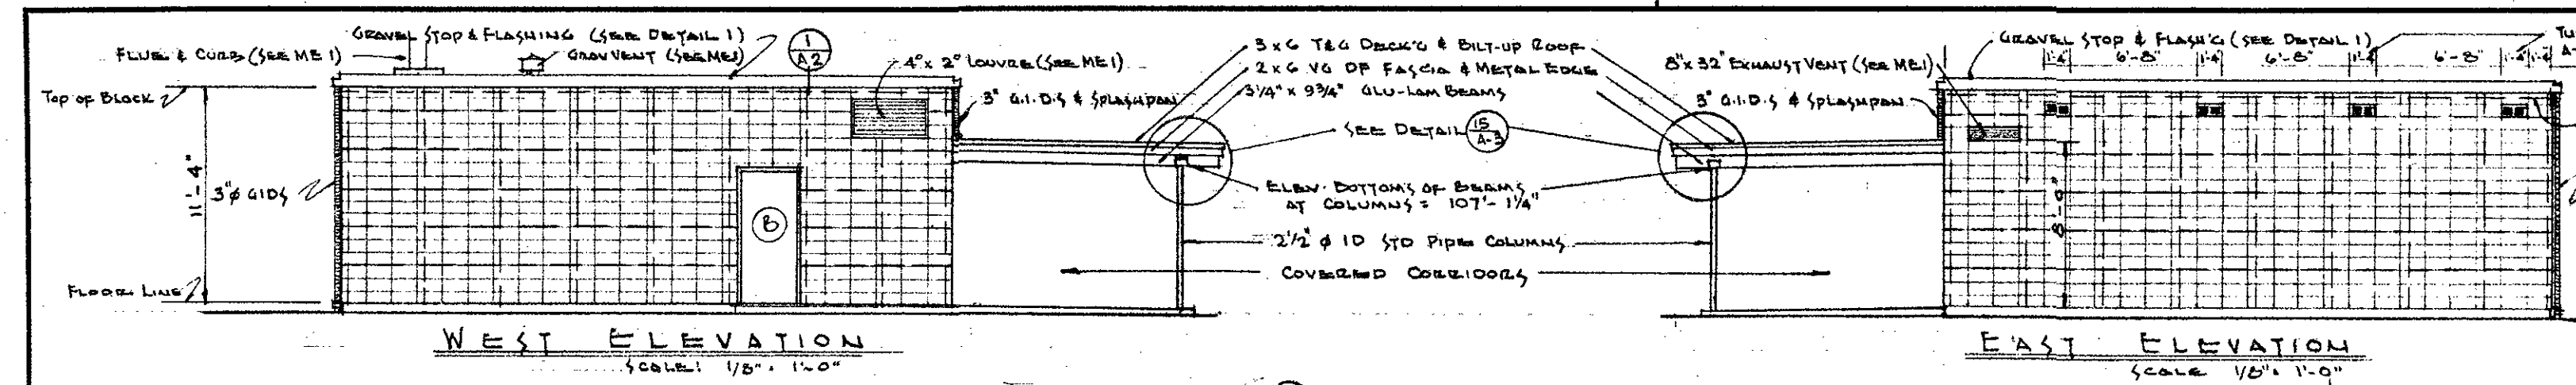 FLUE & CURB (SEE ME 1)
GRAVEL STOP & FLASHING (SEE DETAIL 1)
GRAV VENT (SEE ME1)
1
A2
4⁰ x 2⁰ LOUVRE (SEE ME 1)
TOP OF BLOCK
3" G.I.D.S & SPLASHPAN
11'-4"
3"φ GIDS
B
FLOOR LINE
WEST ELEVATION
SCALE: 1/8" = 1'-0"
3 x 6 T&G DECK'G & BILT-UP ROOF
2 x 6 VG DF FASCIA & METAL EDGE
3 1/4" x 9 3/4" GLU-LAM BEAMS
SEE DETAIL 15
A-3
ELEV. BOTTOMS OF BEAMS
AT COLUMNS = 107'-1 1/4"
2 1/2" φ ID STD PIPE COLUMNS
COVERED CORRIDORS
8" x 32" EXHAUST VENT (SEE ME1)
3" G.I.D.S & SPLASHPAN
GRAVEL STOP & FLASH'G (SEE DETAIL 1)
1'-4" 6'-8" 1'-4" 6'-8" 1'-4" 6'-8" 1'-4" 1'-4"
8'-0"
EAST ELEVATION
SCALE 1/8" = 1'-0"